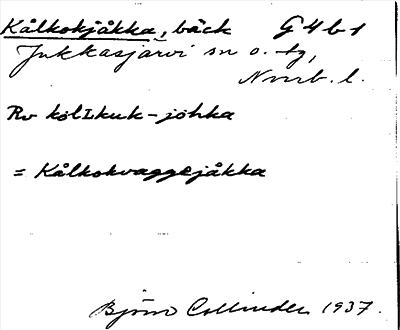 Kålkokjåkka, bäck G 4 b 1
Jukkasjärvi sn o. tg,
Nvrrb. l.
Rv kolLkuk-johka
= Kålkokvaggejåkka
Björn Collinder 1937.